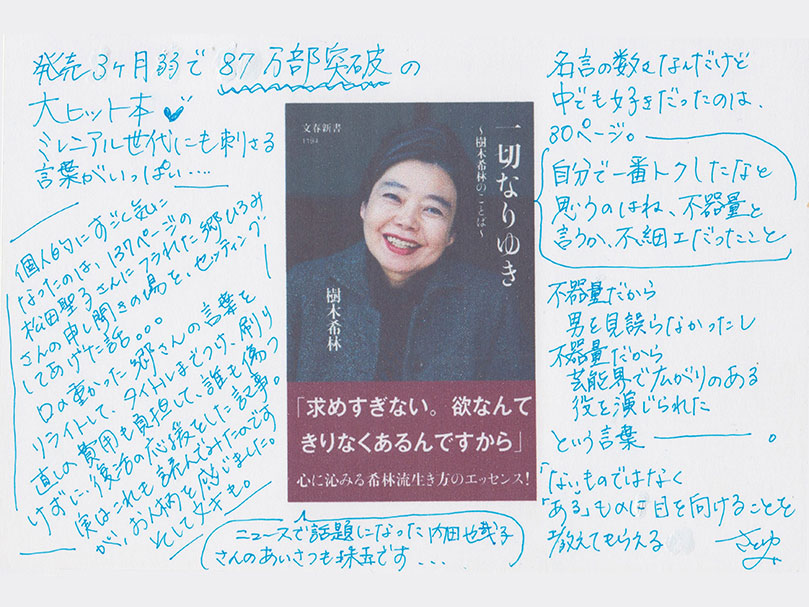 発売3ヶ月弱で87万部突破の
大ヒット本
ミレニアル世代にも刺さる
言葉がいっぱい....
個人的にすごく気に
なったのは、137ページの
松田聖子さんにフラれた郷ひろみ
さんの申し開きの場を、セッティング
してあげた話。。。
口の重かった郷さんの言葉を
リライトして、タイトルまでつけ、刷り
直しの費用も負担して、誰も傷つ
けずに..復活の応援をした記事。
実はこれも読んでみたのです
が、お人柄を感じました。
とてもスキも。
文春新書
1194
一切なりゆき
〜樹木希林のことば〜
樹木希林
「求めすぎない。欲なんて
きりなくあるんですから」
心に沁みる希林流生き方のエッセンス!
ニュースで話題になった内田也哉子
さんのあいさつも珠玉です...
名言の数々なんだけど
中でも好きだったのは、
80ページ。
自分で一番トクしたなと
思うのはね、不器量と
言うか、不細工だったこと
不器量だから
男を見誤らなかったし
不器量だから
芸能界で広がりのある
役を演じられた
という言葉 。
「ない」ものではなく
「ある」ものに目を向けることを
教えてもらえる さとゆみ